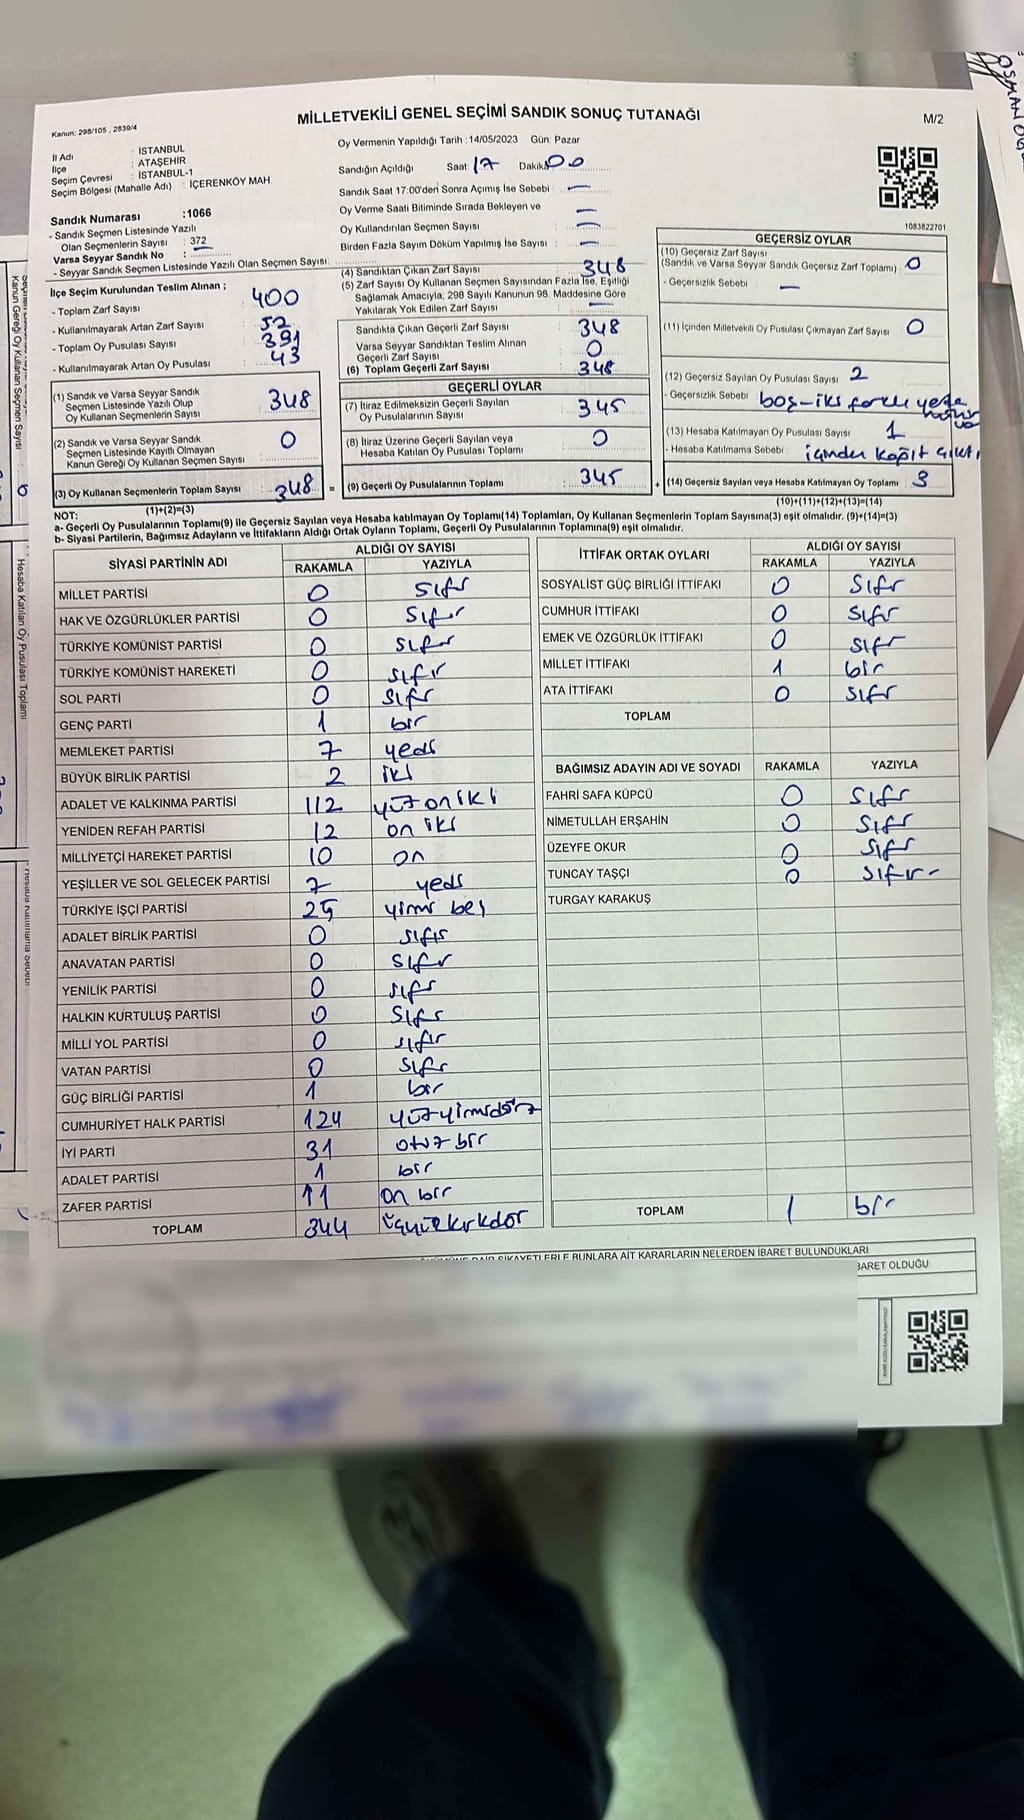 MİLLETVEKİLİ GENEL SEÇİMİ SANDIK SONUÇ TUTANAĞI
M/2
Kanun: 298/105 , 2839/4
İl Adı : İSTANBUL
İlçe : ATAŞEHİR
Seçim Çevresi : İSTANBUL-1
Seçim Bölgesi (Mahalle Adı) : İÇERENKÖY MAH.
Oy Vermenin Yapıldığı Tarih : 14/05/2023 Gün: Pazar
Sandığın Açıldığı Saat: 17 Dakika: 00
Sandık Saat 17:00'den Sonra Açımış İse Sebebi —
Oy Verme Saati Bitiminde Sırada Bekleyen ve
Oy Kullandırılan Seçmen Sayısı : —
Birden Fazla Sayım Döküm Yapılmış İse Sayısı : —
1083822701
Sandık Numarası :1066
- Sandık Seçmen Listesinde Yazılı
Olan Seçmenlerin Sayısı : 372
Varsa Seyyar Sandık No : —
- Seyyar Sandık Seçmen Listesinde Yazılı Olan Seçmen Sayısı:
İlçe Seçim Kurulundan Teslim Alınan ;
- Toplam Zarf Sayısı : 400
- Kullanılmayarak Artan Zarf Sayısı : 52
- Toplam Oy Pusulası Sayısı : 391
- Kullanılmayarak Artan Oy Pusulası : 43
(1) Sandık ve Varsa Seyyar Sandık
Seçmen Listesinde Yazılı Olup
Oy Kullanan Seçmenlerin Sayısı : 348
(2) Sandık ve Varsa Seyyar Sandık
Seçmen Listesinde Kayıtlı Olmayan
Kanun Gereği Oy Kullanan Seçmen Sayısı : 0
(3) Oy Kullanan Seçmenlerin Toplam Sayısı : 348 =
(1)+(2)=(3)
(4) Sandıktan Çıkan Zarf Sayısı 348
(5) Zarf Sayısı Oy Kullanan Seçmen Sayısından Fazla İse, Eşitliği
Sağlamak Amacıyla; 298 Sayılı Kanunun 98. Maddesine Göre
Yakılarak Yok Edilen Zarf Sayısı : —
Sandıkta Çıkan Geçerli Zarf Sayısı : 348
Varsa Seyyar Sandıktan Teslim Alınan
Geçerli Zarf Sayısı : 0
(6) Toplam Geçerli Zarf Sayısı : 348
GEÇERLİ OYLAR
(7) İtiraz Edilmeksizin Geçerli Sayılan
Oy Pusulalarının Sayısı : 345
(8) İtiraz Üzerine Geçerli Sayılan veya
Hesaba Katılan Oy Pusulası Toplamı : 0
(9) Geçerli Oy Pusulalarının Toplamı : 345 +
GEÇERSİZ OYLAR
(10) Geçersiz Zarf Sayısı
(Sandık ve Varsa Seyyar Sandık Geçersiz Zarf Toplamı) : 0
- Geçersizlik Sebebi : —
(11) İçinden Milletvekili Oy Pusulası Çıkmayan Zarf Sayısı : 0
(12) Geçersiz Sayılan Oy Pusulası Sayısı : 2
- Geçersizlik Sebebi : boş-iki farklı yerde
(13) Hesaba Katılmayan Oy Pusulası Sayısı : 1
- Hesaba Katılmama Sebebi : içinden kağıt çıktı
(14) Geçersiz Sayılan veya Hesaba Katılmayan Oy Toplamı : 3
(10)+(11)+(12)+(13)=(14)
NOT:
a- Geçerli Oy Pusulalarının Toplamı(9) ile Geçersiz Sayılan veya Hesaba katılmayan Oy Toplamı(14) Toplamları, Oy Kullanan Seçmenlerin Toplam Sayısına(3) eşit olmalıdır. (9)+(14)=(3)
b- Siyasi Partilerin, Bağımsız Adayların ve İttifakların Aldığı Ortak Oyların Toplamı, Geçerli Oy Pusulalarının Toplamına(9) eşit olmalıdır.
SİYASİ PARTİNİN ADI ALDIĞI OY SAYISI
RAKAMLA YAZIYLA
MİLLET PARTİSİ 0 sıfır
HAK VE ÖZGÜRLÜKLER PARTİSİ 0 sıfır
TÜRKİYE KOMÜNİST PARTİSİ 0 sıfır
TÜRKİYE KOMÜNİST HAREKETİ 0 sıfır
SOL PARTİ 0 sıfır
GENÇ PARTİ 1 bir
MEMLEKET PARTİSİ 7 yedi
BÜYÜK BİRLİK PARTİSİ 2 iki
ADALET VE KALKINMA PARTİSİ 112 yüz on iki
YENİDEN REFAH PARTİSİ 12 on iki
MİLLİYETÇİ HAREKET PARTİSİ 10 on
YEŞİLLER VE SOL GELECEK PARTİSİ 7 yedi
TÜRKİYE İŞÇİ PARTİSİ 25 yirmi beş
ADALET BİRLİK PARTİSİ 0 sıfır
ANAVATAN PARTİSİ 0 sıfır
YENİLİK PARTİSİ 0 sıfır
HALKIN KURTULUŞ PARTİSİ 0 sıfır
MİLLİ YOL PARTİSİ 0 sıfır
VATAN PARTİSİ 0 sıfır
GÜÇ BİRLİĞİ PARTİSİ 1 bir
CUMHURİYET HALK PARTİSİ 124 yüz yirmi dört
İYİ PARTİ 31 otuz bir
ADALET PARTİSİ 1 bir
ZAFER PARTİSİ 11 on bir
TOPLAM 344 üçyüzkırkdör
İTTİFAK ORTAK OYLARI ALDIĞI OY SAYISI
RAKAMLA YAZIYLA
SOSYALİST GÜÇ BİRLİĞİ İTTİFAKI 0 sıfır
CUMHUR İTTİFAKI 0 sıfır
EMEK VE ÖZGÜRLÜK İTTİFAKI 0 sıfır
MİLLET İTTİFAKI 1 bir
ATA İTTİFAKI 0 sıfır
TOPLAM
BAĞIMSIZ ADAYIN ADI VE SOYADI RAKAMLA YAZIYLA
FAHRİ SAFA KÜPCÜ 0 sıfır
NİMETULLAH ERŞAHİN 0 sıfır
ÜZEYFE OKUR 0 sıfır
TUNCAY TAŞÇI 0 sıfır-
TURGAY KARAKUŞ
TOPLAM 1 bir
ŞİKAYETLERLE BUNLARA AİT KARARLARIN NELERDEN İBARET BULUNDUKLARI
BARET OLDUĞU
Kanun Gereği Oy Kullanan Seçmen Sayısı
Hesaba Katılan Oy Pusulası Toplamı
OSMAN